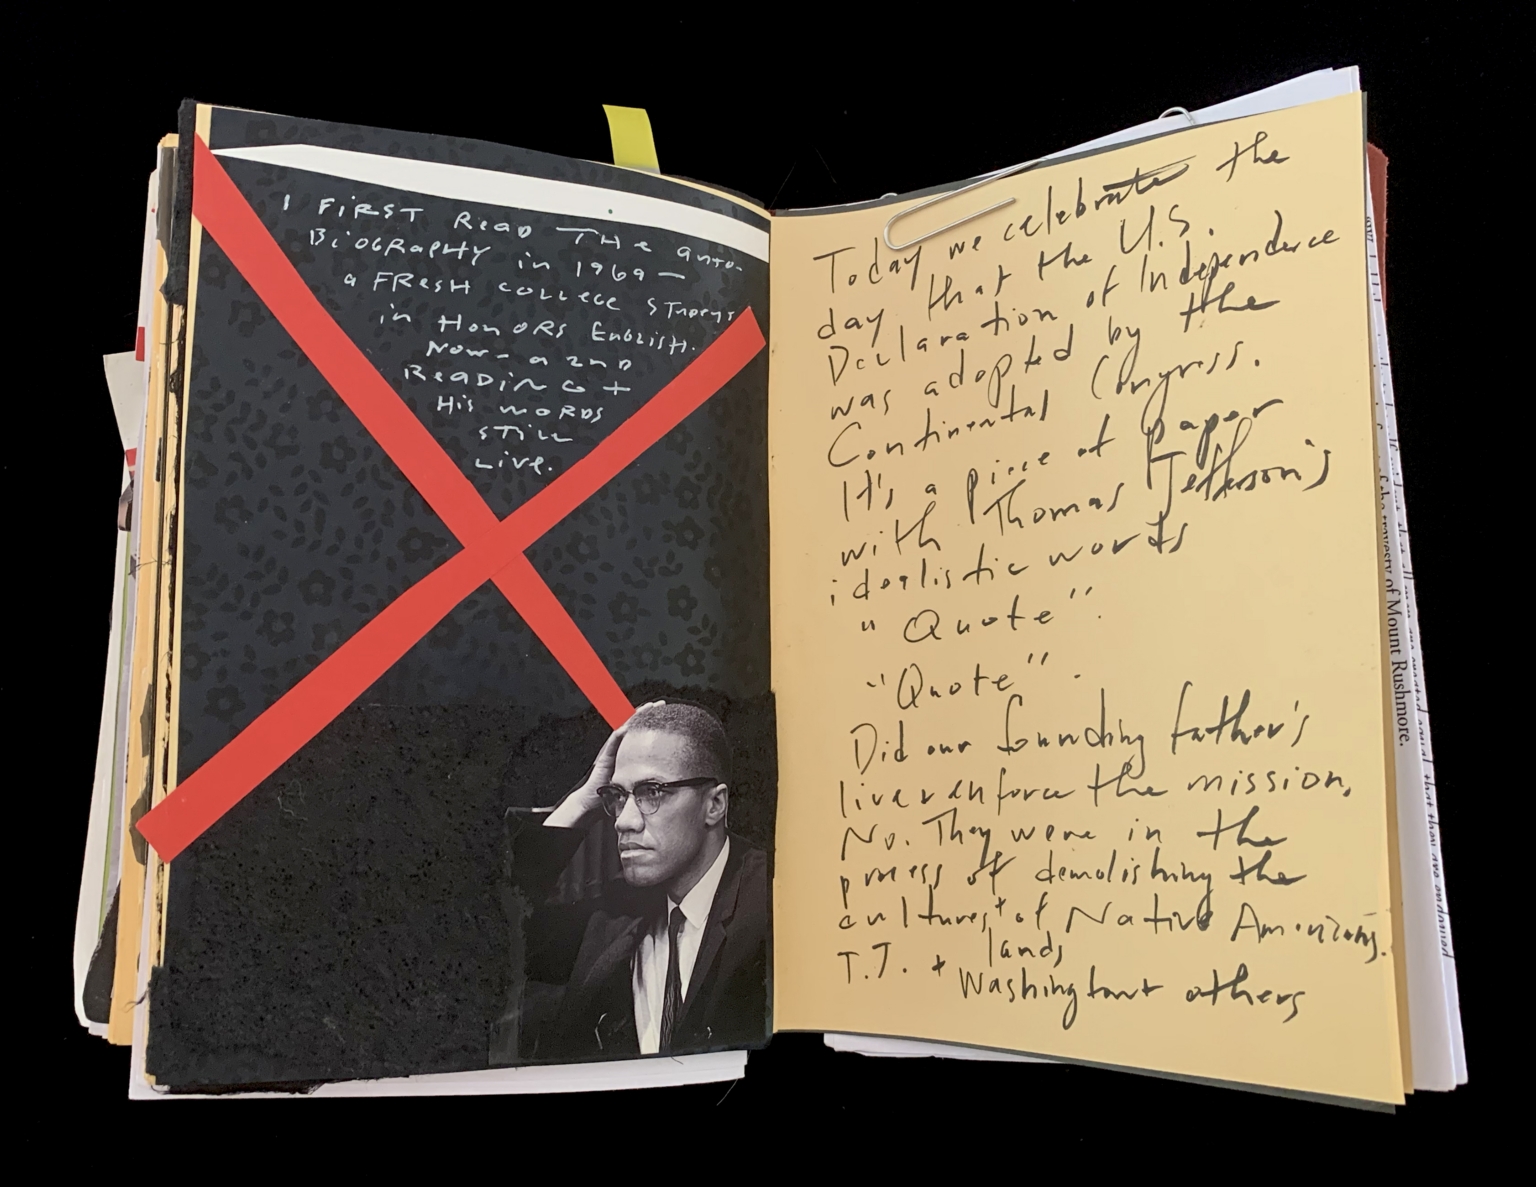 I FIRST READ THE AUTO-
BIOGRAPHY in 1969 —
a FRESH COLLEGE STUDENT
in HONORS ENGLISH.
NOW - a 2ND
READING +
HIS WORDS
STILL
LIVE.
Today we celebrate the
day that the U.S.
Declaration of Independence
was adopted by the
Continental Congress.
It's a piece of paper
with Thomas Jefferson's
idealistic words
"Quote".
"Quote".
Did our founding father's
live & enforce the mission.
No. They were in the
process of demolishing the
cultures + of Native Americans.
lands
T.J. + Washington + others
of the travesty of Mount Rushmore.